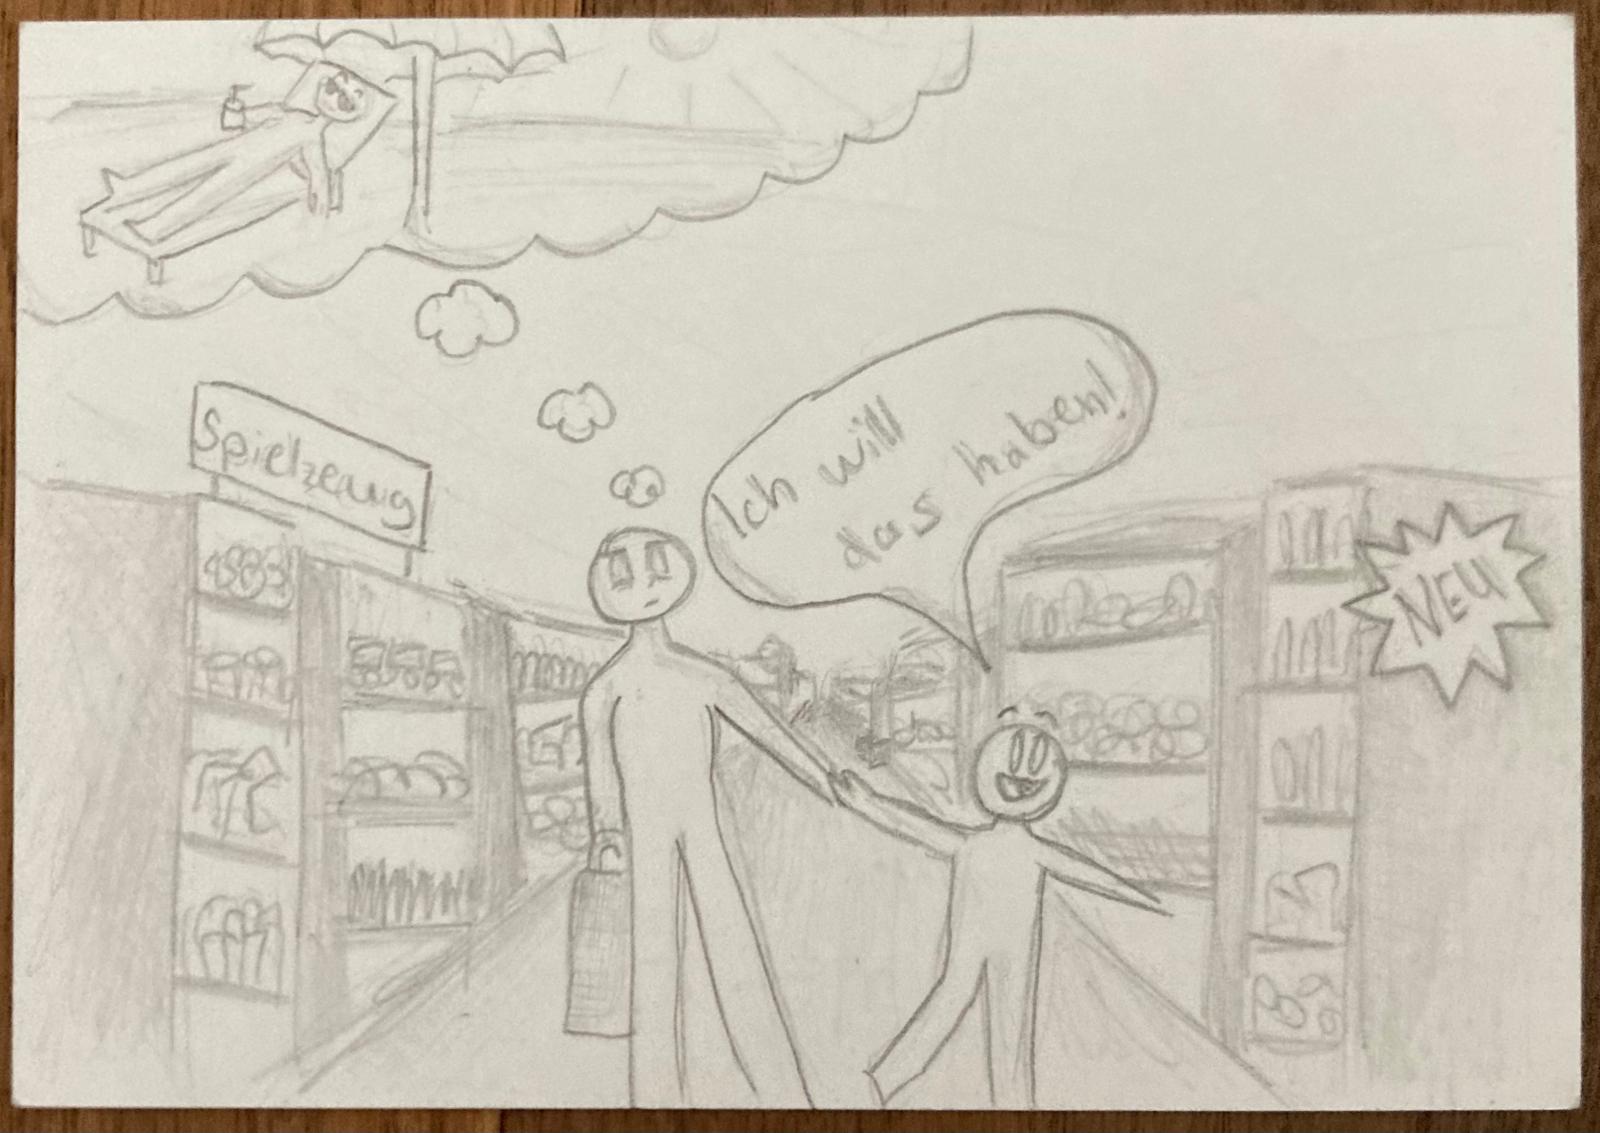 Spielzeug
Ich will
das haben!
NEU